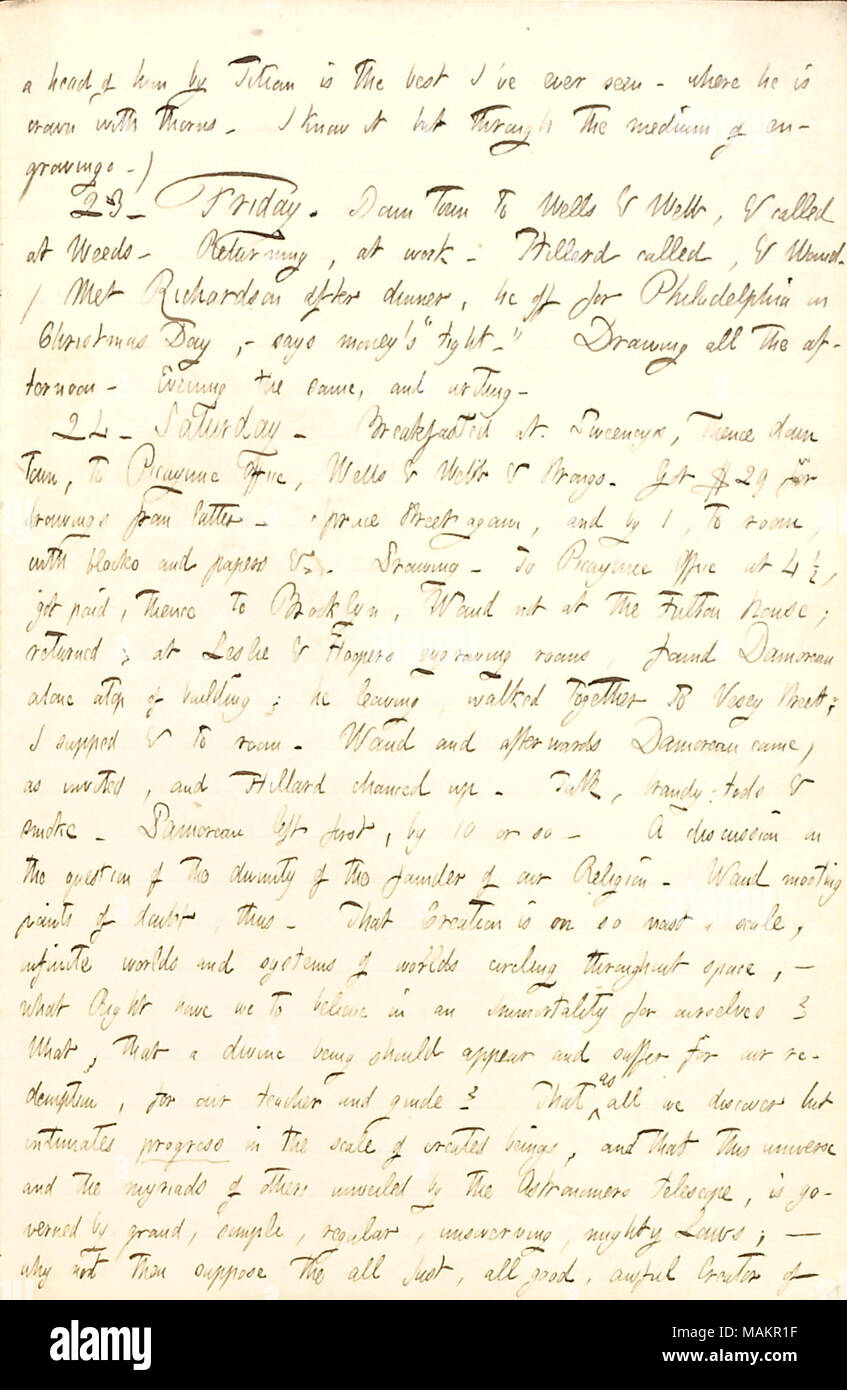 a head of him by Titian is the best I've ever seen - where he is
crown with thorns. I know it but through the medium of en-
gravings. )
23 _ Friday. Down town to Wells & Webb, & called
at Weeds _ Returning, at work _ Hillard called, & Waud.
( Met Richardson after dinner, he off for Philadelphia on
Christmas Day, - says money's "tight." Drawing all the af-
ternoon _ Evening the same, and writing _
24 _ Saturday _ Breakfasted at Sweeneys, thence down
town, to Picayune Office, Wells & Webb & Strongs. Got $29 for
drawings from latter _ Spruce Street again, and by 1, to room,
with blocks and papers &c. Drawing _ To Picayune Office at 4 ½,
got paid, thence to Brooklyn, Waud not at the Fulton House;
returned; at Leslie & Hoopers engraving rooms, found Damoreau
alone atop of building; he leaving, walked together to Vesey Street;
I supped & to room _ Waud and afterwards Damoreau came,
as invited, and Hillard chanced up _ Talk, brandy-tods &
smoke _ Damoreau left first, by 10 or so _ A discussion on
the question of the divinity of the founder of our Religion _ Waud mooting
points of doubt, thus _ That Creation is on so vast a scale,
infinite worlds and systems of worlds circling throughout space, —
what Right have we to believe in an Immortality for ourselves ?
What, that a divine being should appear and suffer for our re-
demption, for our teacher and guide ? That as all we discover but
intimates progress in the scale of created beings, and that this universe
and the myriads of others unveiled by the Astronomers telescope, is go-
verned by grand, simple, regular, unswerving, mighty Laws; —
why not then suppose the all just, all good, awful Creator of
alamy
Image ID: MAKR1F
www.alamy.com